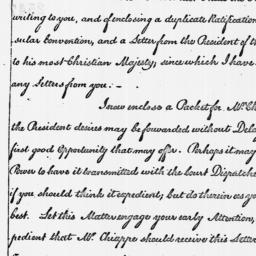 writing to you, and of enclosing a duplicate Ratification
sular Convention, and a Letter from the President of th
to his most Christian Majesty; since which I have
any Letters from you. —
I now enclose a Packet for Mr. Ch
the President desires may be forwarded without Dela
first good Opportunity that may offer. Perhaps it may
Power to have it transmitted with the Court Dispatche
if you should think it expedient; but do therein as yo
best. Let this Matter engage your early Attention,
pedient that Mr. Chiappe should receive this Letter